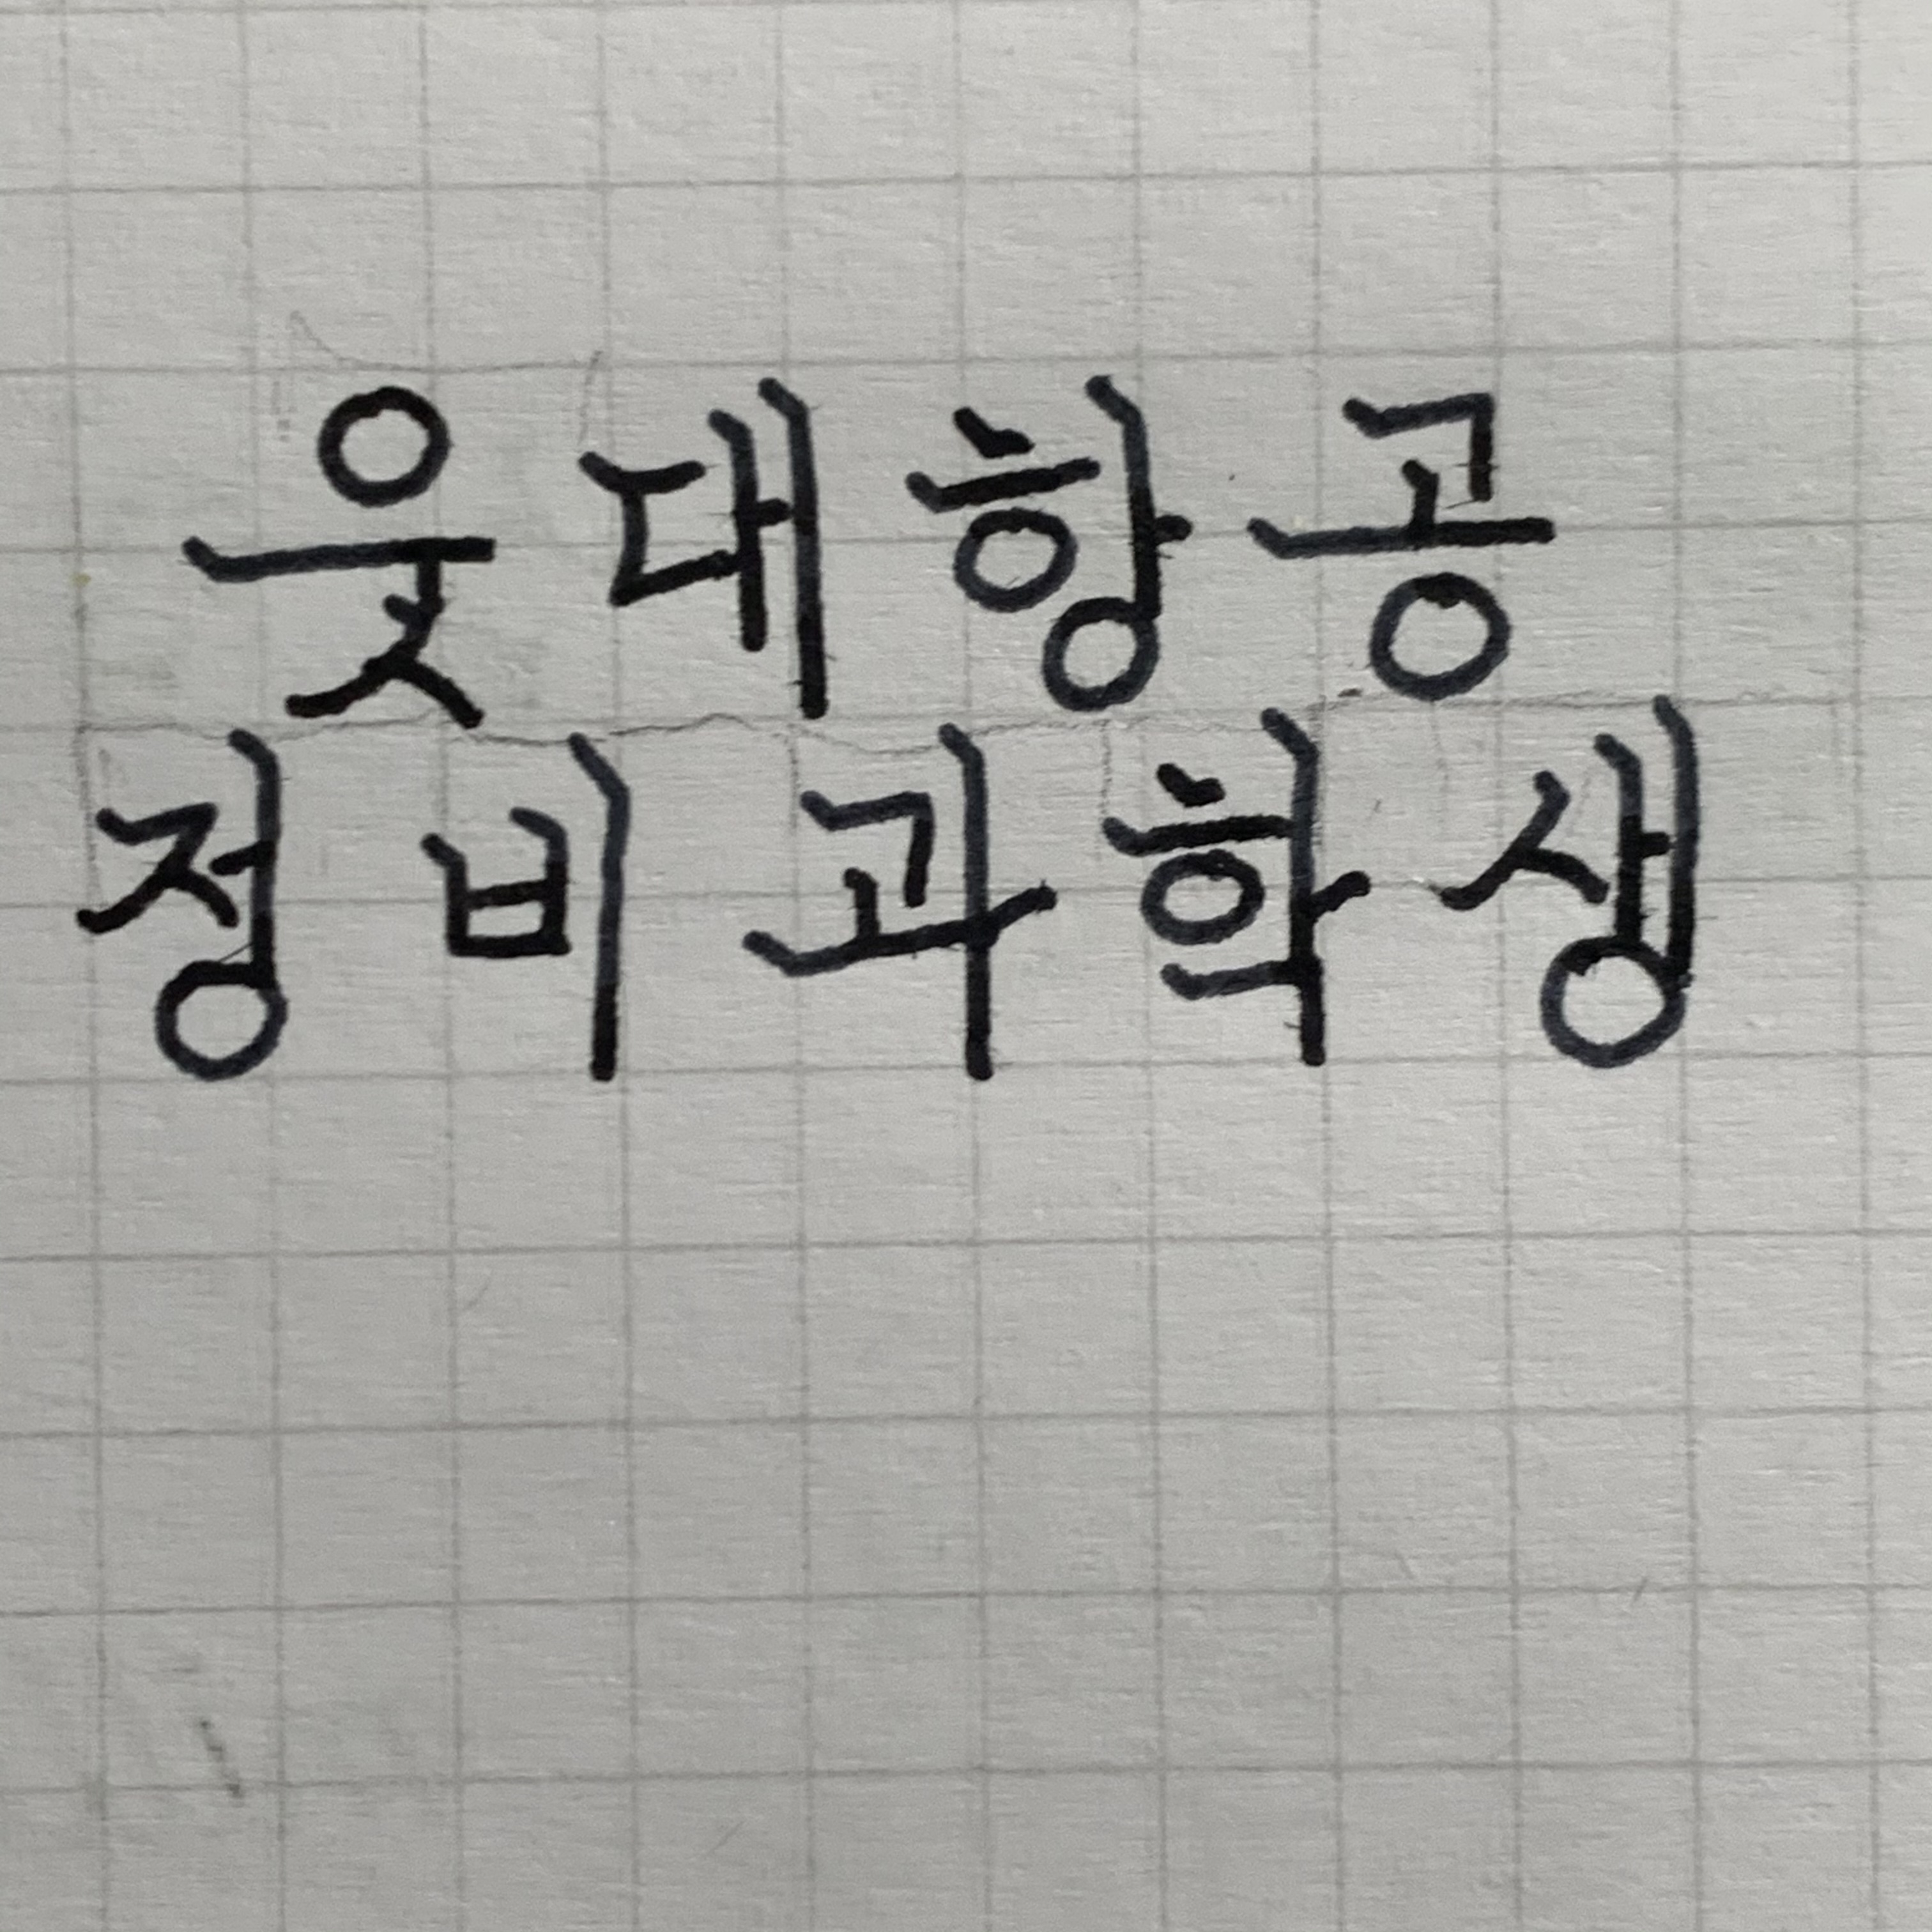 웃대항공
정비과학생